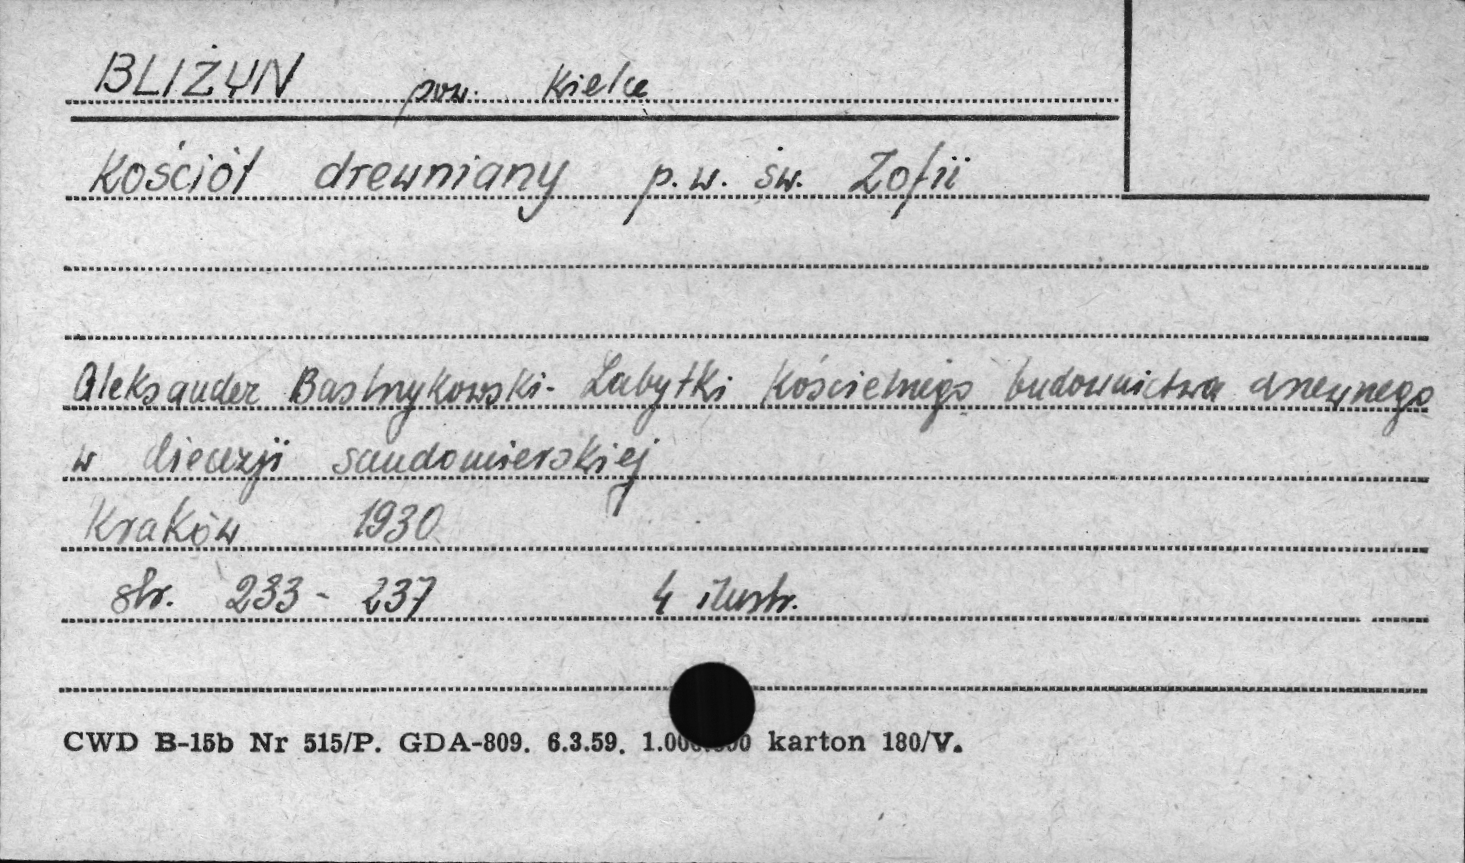 BLIŻYN pow. Kielce
Kościół drewniany p.w. św. Zofii
Aleksander Bastrzykowski - Zabytki Kościelnego budownictwa drzewnego
w diecezji sandomierskiej
Kraków 1930
str. 233 - 237 4 ilustr.
CWD B-15b Nr 515/P. GDA-809. 6.3.59. 1.000.000 karton 180/V.